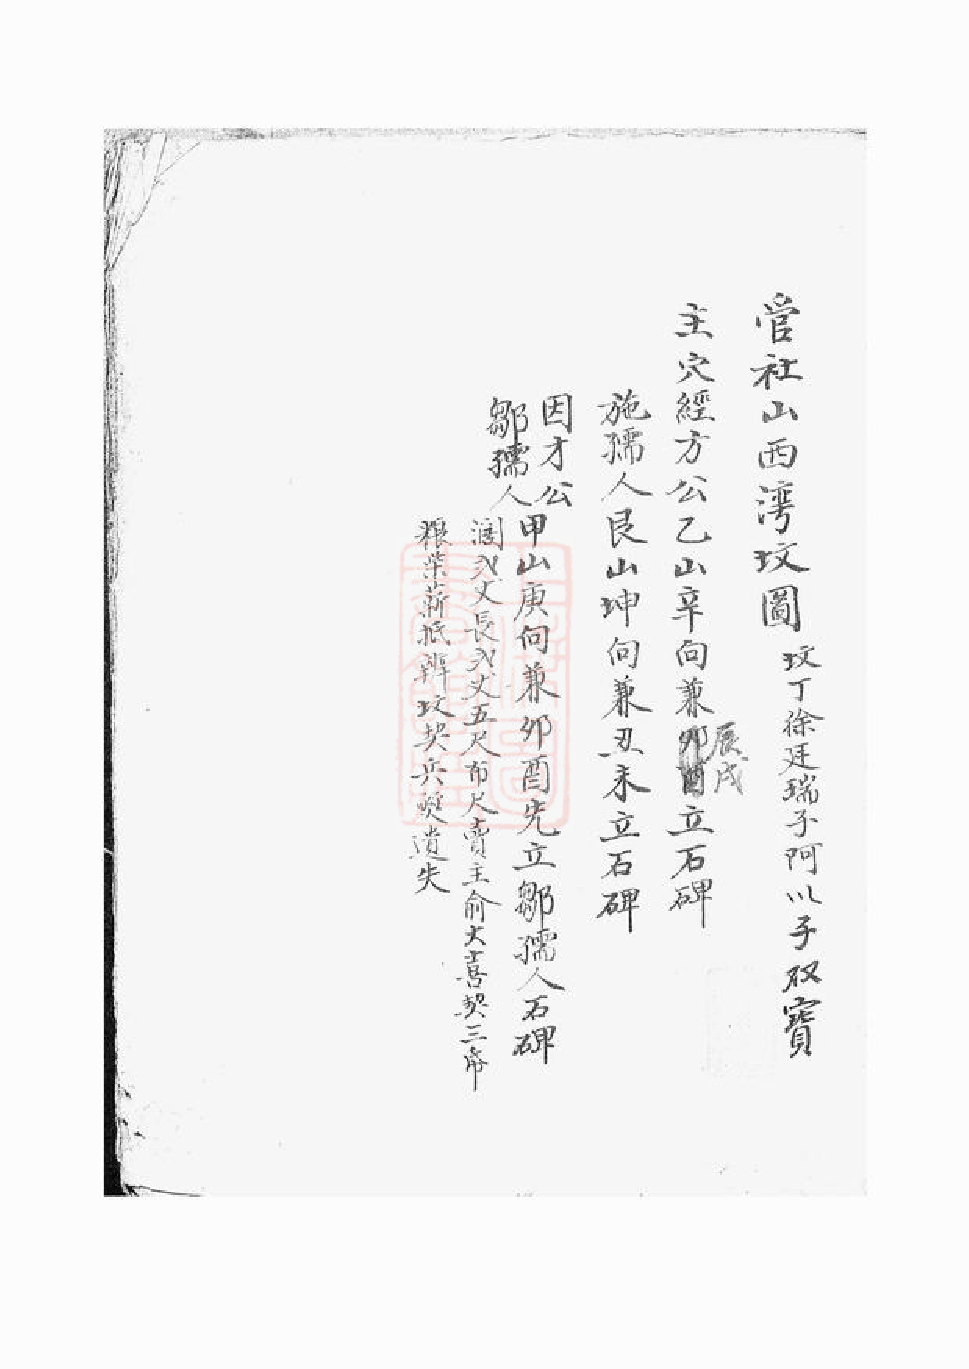 管社山西湾坟圖 坟丁徐廷瑞子阿以子双寶
主穴經方公乙山辛向兼卯酉立石碑
辰戌
施孺人艮山坤向兼丑未立石碑
因才公
鄒孺人
甲山庚向兼卯酉先立鄒孺人石碑
濶弐丈長弐丈五尺布尺賣主俞大喜契三帋
粮柴薪抵辨坟契兵燹遺失